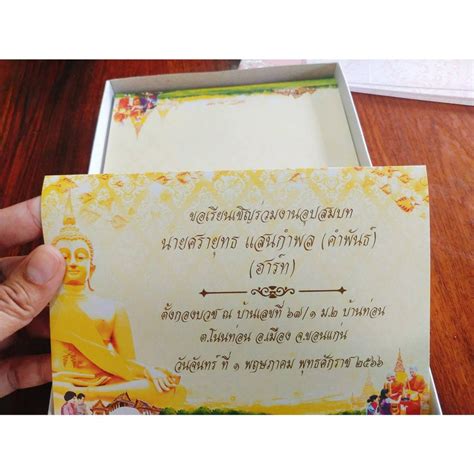 ขอเรียนเชิญร่วมงานอุปสมบท
นายศรายุทธ แสนกำพล (คำพันธ์)
(ฮาร์ท)
ตั้งกองบวช ณ บ้านเลขที่ ๖๗/๑ ม.๒ บ้านท่อน
ต.โนนท่อน อ.เมือง จ.ขอนแก่น
วันจันทร์ ที่ ๑ พฤษภาคม พุทธศักราช ๒๕๖๖